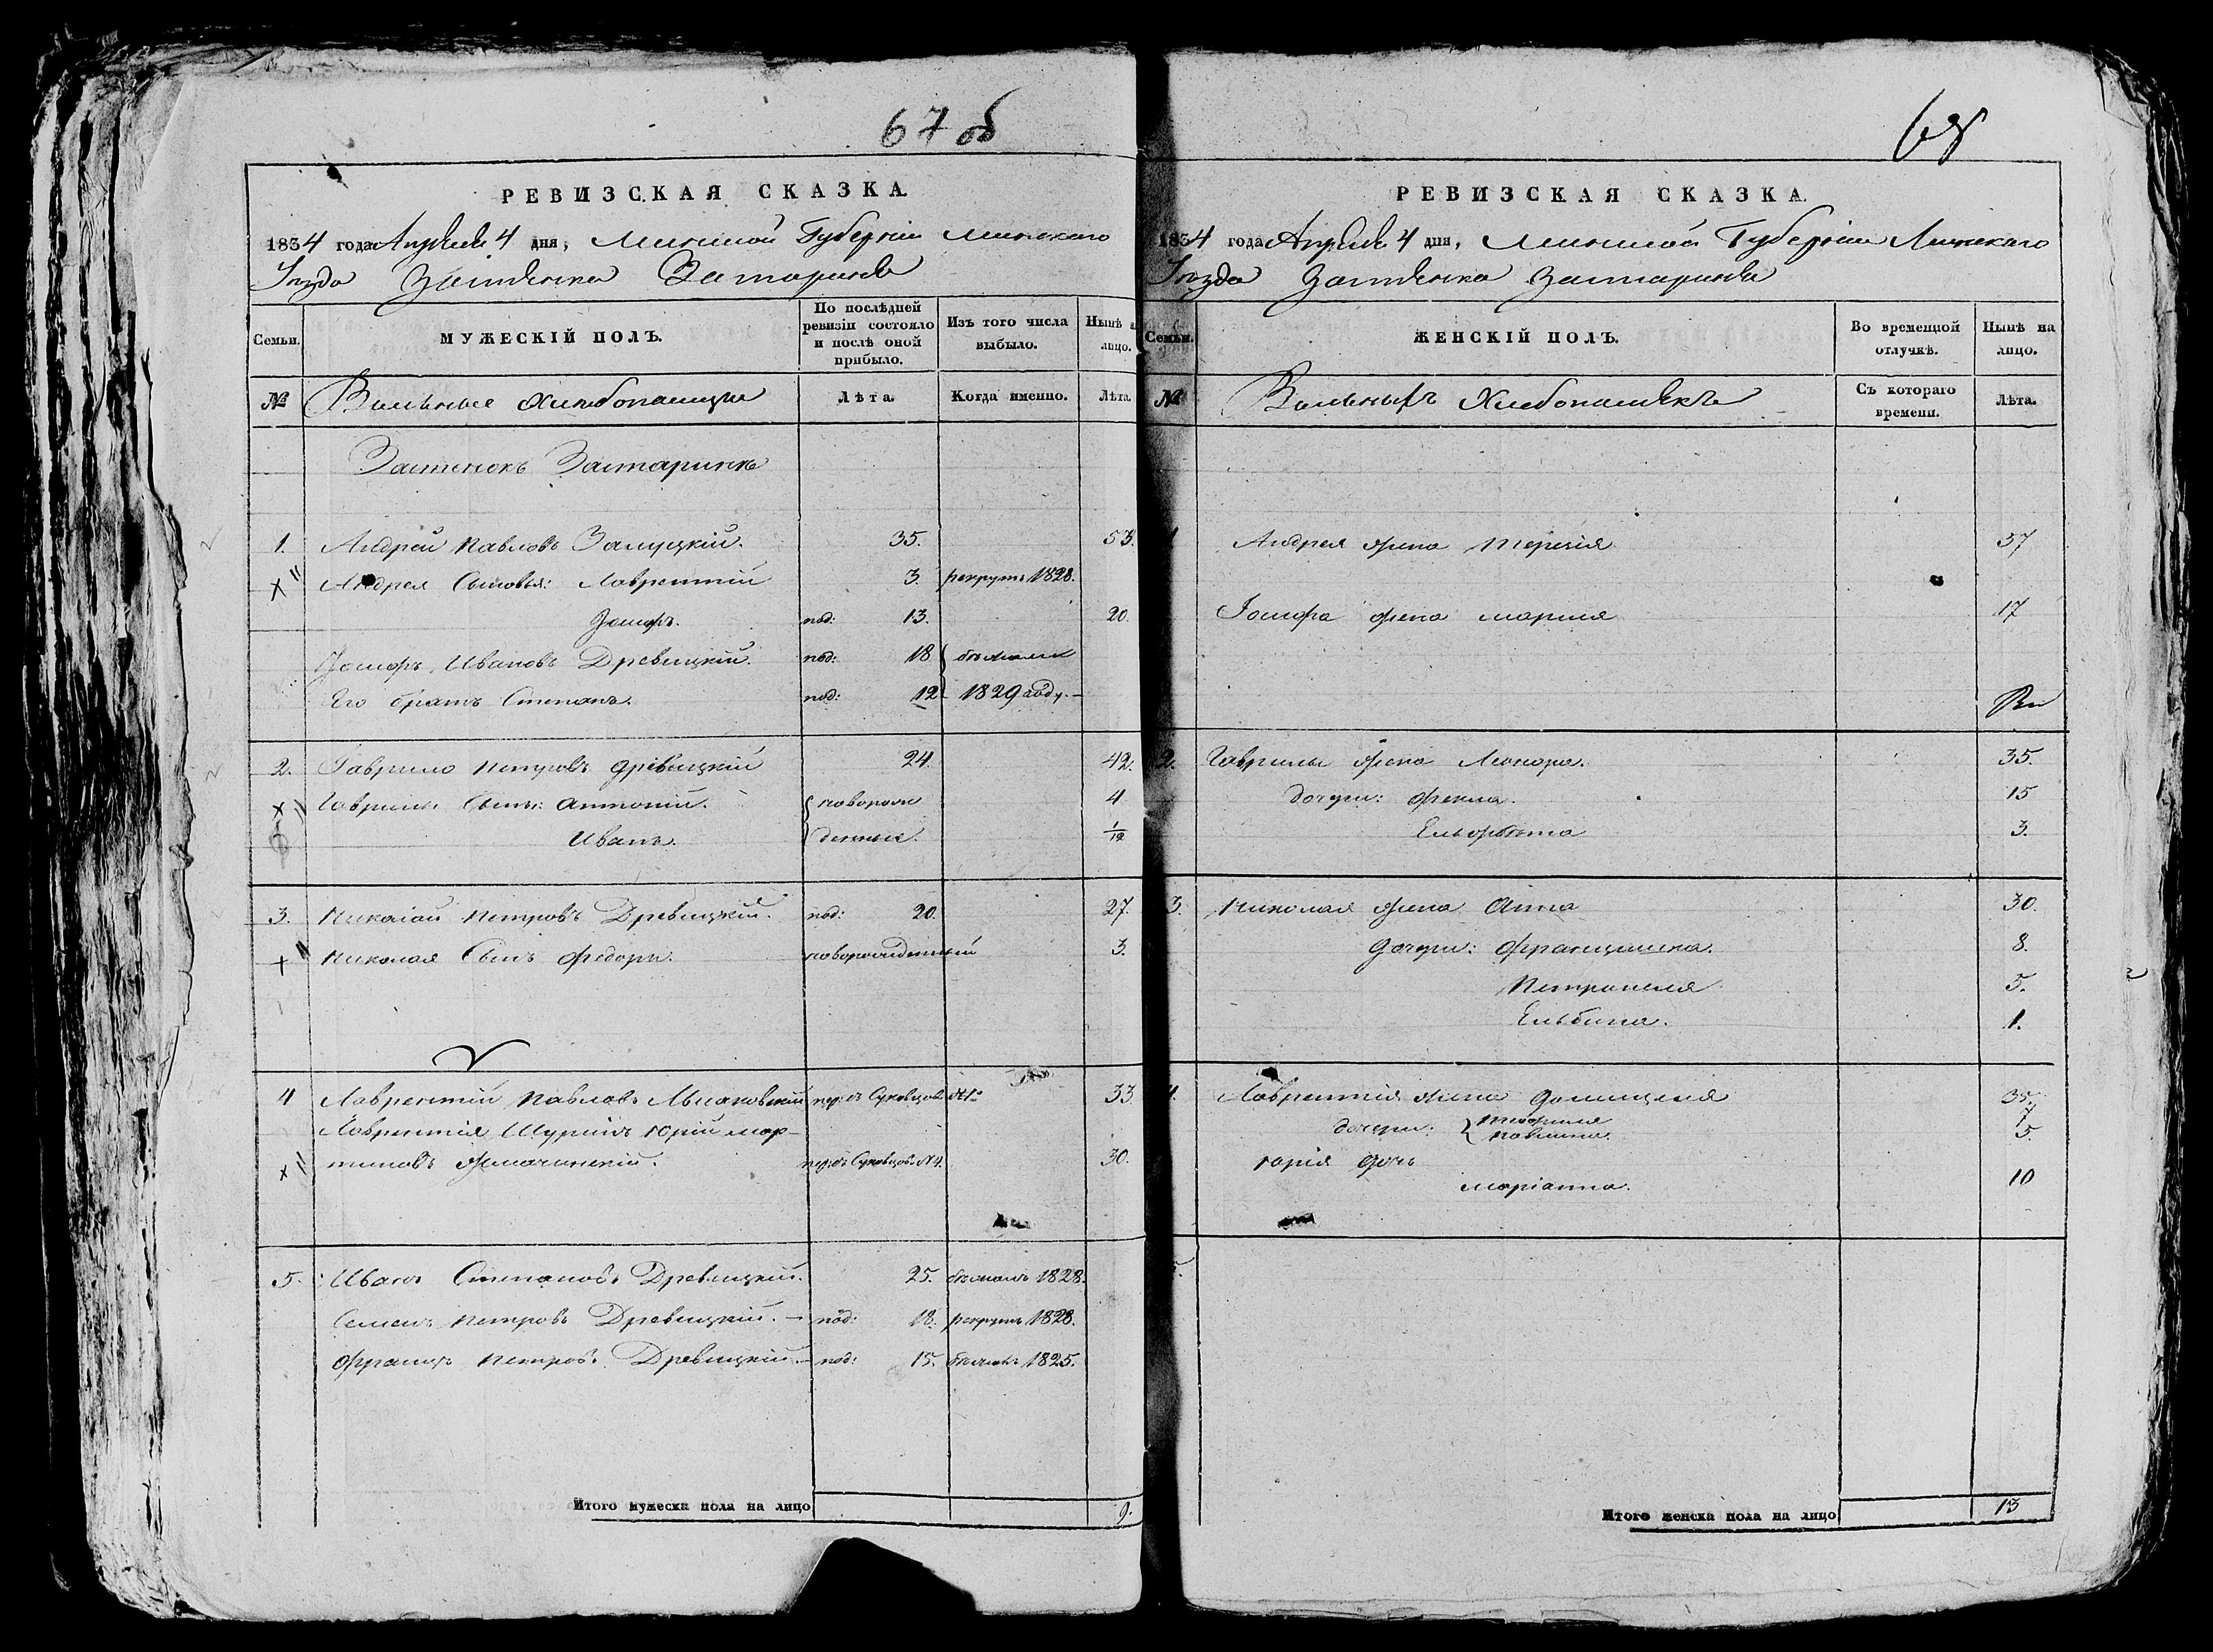 67 об
РЕВИЗСКАЯ СКАЗКА.
1834 года Апреля 4 дня, Минской Губерніи Минскаго
Уезда Застенка Застаринья
Семьи.
МУЖЕСКІЙ ПОЛЪ.
По послѣдней ревизіи состояло и послѣ оной прибыло.
Изъ того числа выбыло.
Нынѣ на лицо.
№
Вольные Хлебопашцы
Лѣта.
Когда именно.
Лѣта.
Застенокъ Застаринье
1. Андрей Павловъ Залуцкій. 35. 53.
Андрея Сыновья: Лаврентій 3. рекрутъ 1828.
Іосифъ. под: 13. 20.
Іосифъ Ивановъ Древицкій. под: 18 бежали
Его братъ Степанъ. под: 12 1829 году.
2. Гаврило Петровъ Древицкій 24. 42.
Гаврилы Сынъ: Антоній. новорож 4
Иванъ. денные. 1/12
3. Николай Петровъ Древицкій. под: 20. 27.
Николая Сынъ Федоръ. новорожденный 3.
4 Лаврентій Павловъ 33
Лаврентія Шуринъ Юрій Мар-
тиновъ 30.
5. Иванъ Степановъ Древицкій. 25. бежалъ 1828.
Семенъ Петровъ Древицкій. — под: 18. рекрутъ 1828.
Францъ Петровъ Древицкій. — под: 15. бежалъ 1825.
Итого мужеска пола на лицо 9.
68
РЕВИЗСКАЯ СКАЗКА.
1834 года Апреля 4 дня, Минской Губерніи Минскаго
Уезда Застенка Застаринья
Семьи.
ЖЕНСКІЙ ПОЛЪ.
Во временной отлучкѣ.
Нынѣ на лицо.
№
Вольныхъ Хлебопашекъ
Съ котораго времени.
Лѣта.
Андрея жена Терезія 37
Іосифа жена Марія 17
2. Гаврилы жена Леонора. 35.
дочери: Фекла. 15
Ельжбета 3.
3. Николая жена Анна 30.
Дочери: Францишка. 8.
Петронеля 5.
Ельбина. 1.
4. Лаврентія жена Домицеля 35.
дочери: Теофиля 7
Павлина. 5
Юрія дочь
Маріанна. 10
Итого женска пола на лицо 13